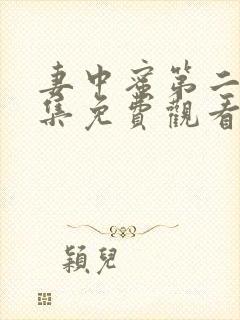 妻中蜜第二
集免費觀看
穎兒